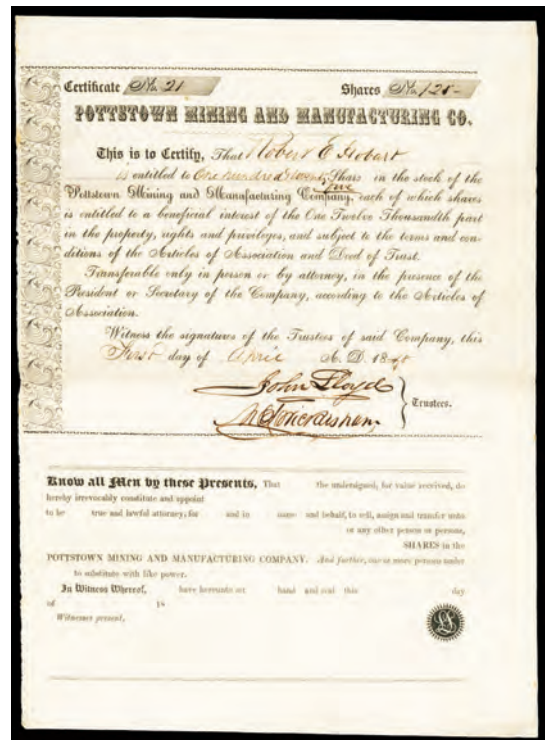 Certificate No. 21 Shares No. 125-
POTTSTOWN MINING AND MANUFACTURING CO.
This is to Certify, That Robert E Hobart
is entitled to One hundred twenty Shares in the stock of the
five
Pottstown Mining and Manufacturing Company, each of which shares
is entitled to a beneficial interest of the One Twelve Thousandth part
in the property, rights and privileges, and subject to the terms and con-
ditions of the Articles of Association and Deed of Trust.
Transferable only in person or by attorney, in the presence of the
President or Secretary of the Company, according to the Articles of
Association.
Witness the signatures of the Trustees of said Company, this
First day of April A. D. 18
John Lloyd
Trustees.
Know all Men by these Presents, That the undersigned, for value received, do
hereby irrevocably constitute and appoint
to be true and lawful attorney, for and in name and behalf, to sell, assign and transfer unto
or any other person or persons,
SHARES in the
POTTSTOWN MINING AND MANUFACTURING COMPANY. And further, one or more persons under
to substitute with like power.
In Witness Whereof, have hereunto set hand and seal this day
of 18
Witnesses present.
LS